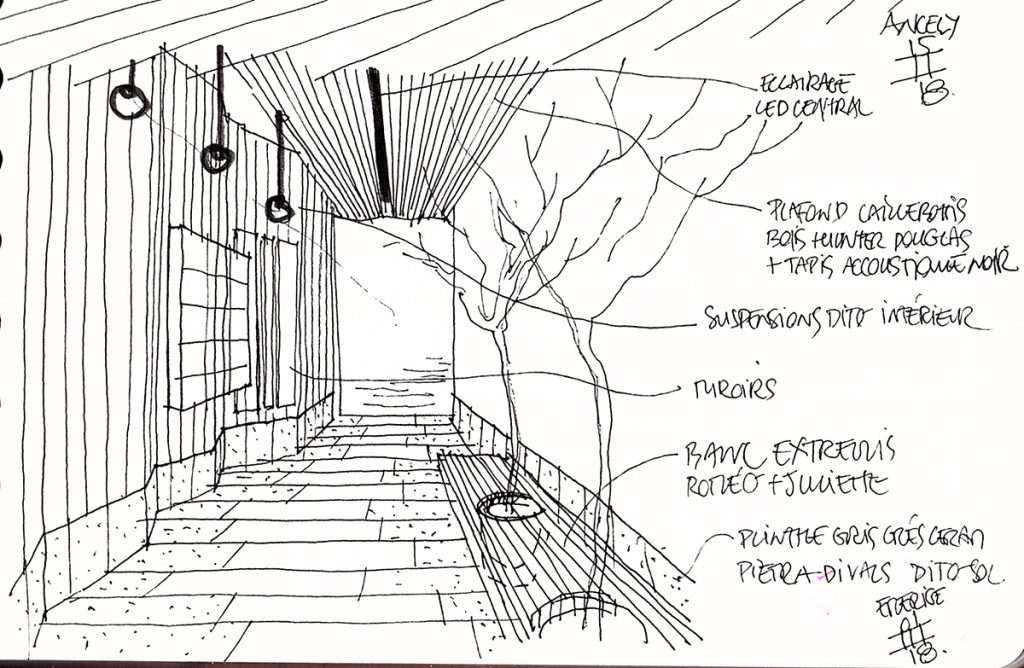 ANCELY
15
11
18.
ECLAIRAGE
LED CENTRAL
PLAFOND CAILLEBOTIS
BOIS HUNTER DOUGLAS
+ TAPIS ACCOUSTIQUE NOIR
SUSPENSIONS DITO INTÉRIEUR
MIROIRS
BANC EXTREMIS
ROMÉO + JULIETTE
PLINTHE GRIS GRÈS CERAM
PIETRA DI VALS DITO SOL.
18.